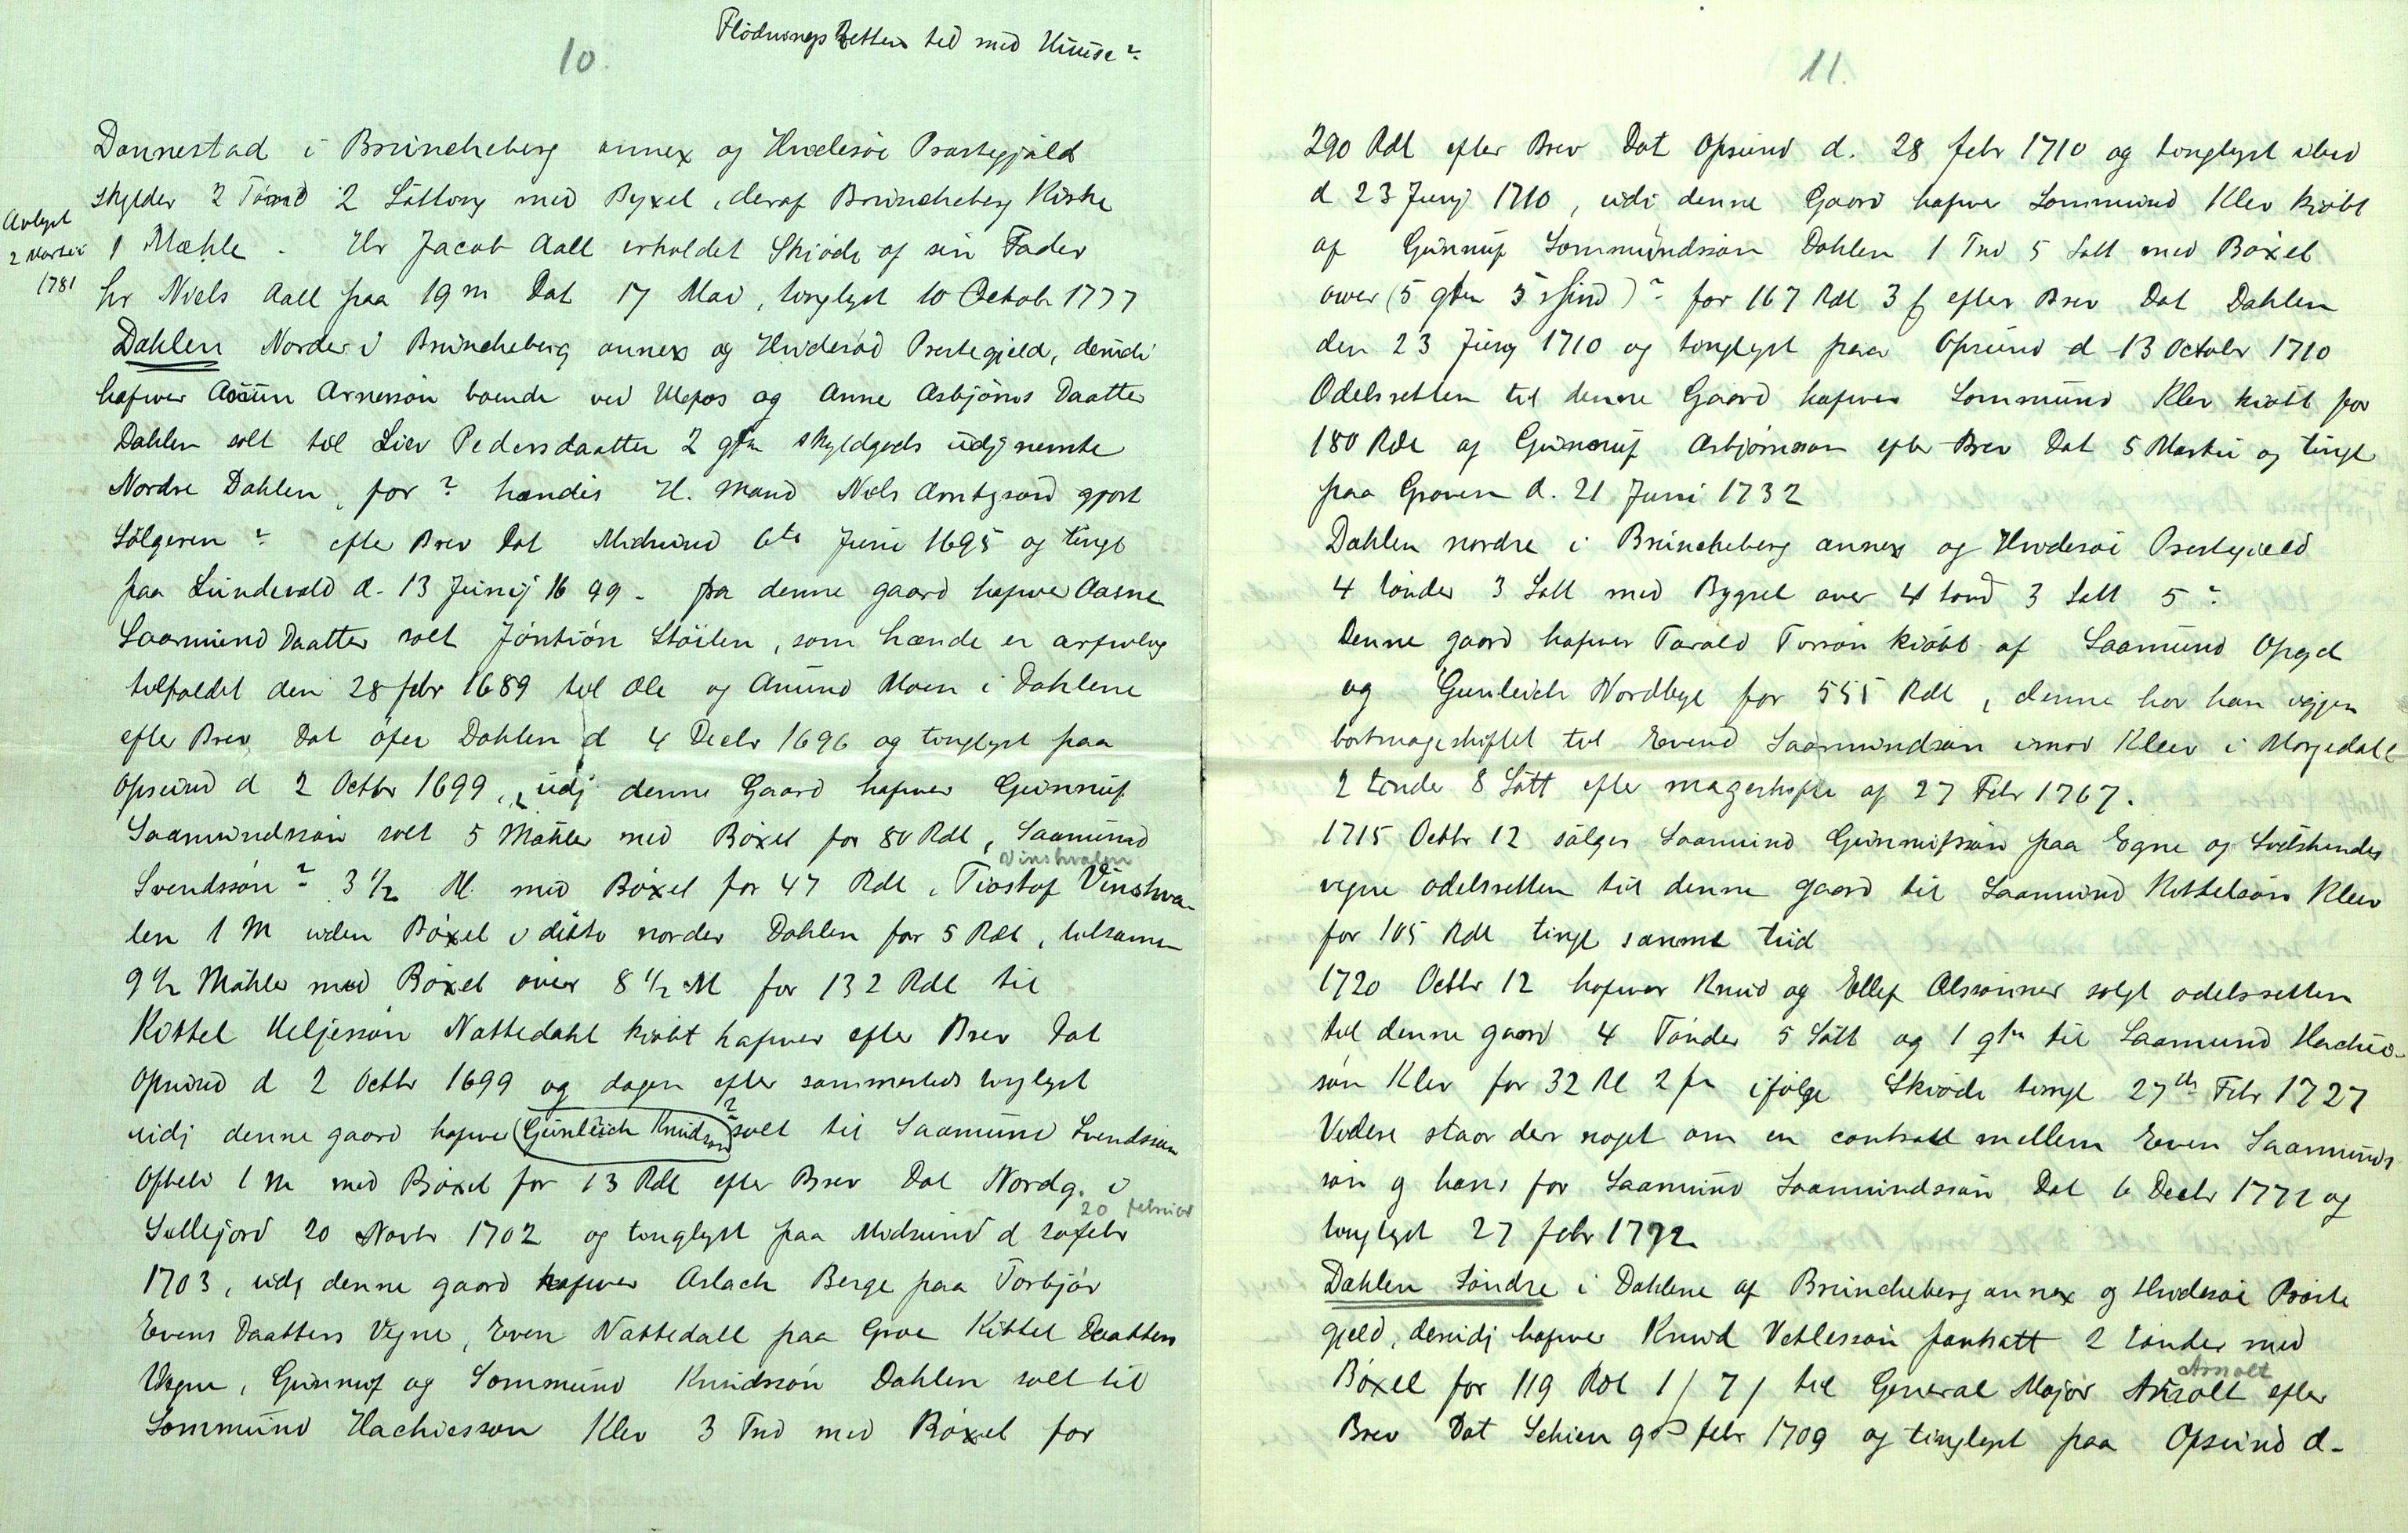 10.
Flödnings Retten til med Huuse?
Dannestad i Bruncheberg annex og Hvidesöe Præstegjæld
skylder 2 Tönd 2 Sättong med Byxel, deraf Bruncheberg Kirke
Avlyst
2 Martii
1781
1 Mæhle. Hr Jacob Aall erholdet Skiöde af sin Fader
hr Niels Aall paa 19 m Dat 17 Mai, tinglyst 10 Octobr 1777
Dahlen Norder i Bruncheberg annex og Hvidesöd Prestegield, deridi
hafwer Auun Arnessön boende ved Ulefos og Anne Asbjörns Daatter
Dahlen solt til Liev Pedersdaatter 2 gtn skyldgods udj nemte
Nordre Dahlen, for ? hændis H. Mand Niels Arntzsøn gjort
Sölgeren ? efter Brev Dat Midsund 6te Juni 1695 og tingl
paa Lundevald d. 13 Junij 1699. fra denne gaard hafwer Aasne
Saamund Daatter solt Jöntiön Stöilen, som hænde er arfvelig
tilfaldet den 28 febr 1689 til Ole og Anund Moen i Dahlene
efter Brev Dat öfer Dahlen d 4 Decbr 1696 og tinglyst paa
Opsund d 2 Octbr 1699, udj denne Gaard hafwer Gunnuf
Saamundssön solt 5 Mähler med Böxel for 80 Rdl, Saamund
Vinshvalen
Svendssön ? 3 1/2 M. med Böxel for 47 Rdl, Tiostof Vinshva-
len 1 M uden Böxel i ditto norder Dahlen for 5 Rdl, tilsamen
9 1/2 Mähler med Böxel over 8 1/2 M for 132 Rdl til
Kittel Heljessön Nattedahl kiöbt hafwer efter Brev Dat
Opsund d 2 Octbr 1699 og dagen efter sammesteds tinglyst
udj denne gaard hafwer (Gunleich Knudson)? solt til Saamund Svendssön
Ofteli 1 M med Böxel for 13 Rdl efter Brev Dat Nordg. i
20 februar
Sillejord 20 Novbr 1702 og tinglyst paa Midsund d 20 febr
1703, udj denne gaard hafwer Aslach Berge paa Torbjör
Evens Daatters Vegne, Even Nattedall paa Groe Kittel Daatters
Vegne, Gunnuf og Sommund Knudssön Dahlen solt til
Sommund Hachiesson Klev 3 Tnd med Böxel for
11.
290 Rdl efter Brev Dat Opsund d. 28 febr 1710 og tinglyst ibid
d 23 Junj 1710, udi denne Gaard hafwer Sommund Klev kiöbt
af Gunnuf Sommundssön Dahlen 1 Tnd 5 Sätt med Böxel
ower (5 gtn 5 skind)? for 167 Rdl 3 ß efter Brev Dat Dahlen
den 23 Juny 1710 og tinglyst paa Opsund d 13 Octobr 1710
Odelsretten til denne Gaard hafwer Sommund Klev kiöbt for
180 Rdl af Gunnuf Asbjörnsson efter Brev Dat 5 Martii og tingl
paa Groven d. 21 Juni 1732
Dahlen nordre i Bruncheberg annex og Hvidesöe Prestegield
4 tönder 3 Sätt med Bygsel over 4 tönd 3 Sätt 5 ?
Denne gaard hafwer Tarald Torsön kiöbt af Saamund Opgd
og Gunleich Nordbye for 555 Rdl, denne har han igjen
bortmageskiftet til Evend Saamundsön Klev i Morgedahl
2 tönder 8 Sätt efter mageskifte af 27 Febr 1767.
1715 Octbr 12 sälger Saamund Gunnufssön paa Egne og Södskendes
vegne odelsretten til denne gaard til Saamund Kittelsön Klev
for 105 Rdl tingl samme tiid
1720 Octbr 12 hafwer Knud og Ellef Olssönner solgt odelsretten
til denne gaard 4 Tönder 5 Sätt og 1 gtn til Saamund Hachie-
sön Klev for 32 Rl 2 ß ifölge Skiöde tingl 27de Febr 1727
Videre staar der noget om en contract mellem Even Saamunds-
sön og hans for Saamund Saamundssön Dat 6 Decbr 1771 og
tinglyst 27 febr 1772.
Dahlen Söndre i Dahlene af Bruncheberg annex og Hvidesöe Præste
gield, deridj hafwer Knud Vetlessön pantsatt 2 tönder med
Arnolt
Böxel for 119 Rdl 1/7/ til General Major Arnolt efter
Brev Dat Schien 9de febr 1709 og tinglyst paa Opsund d-